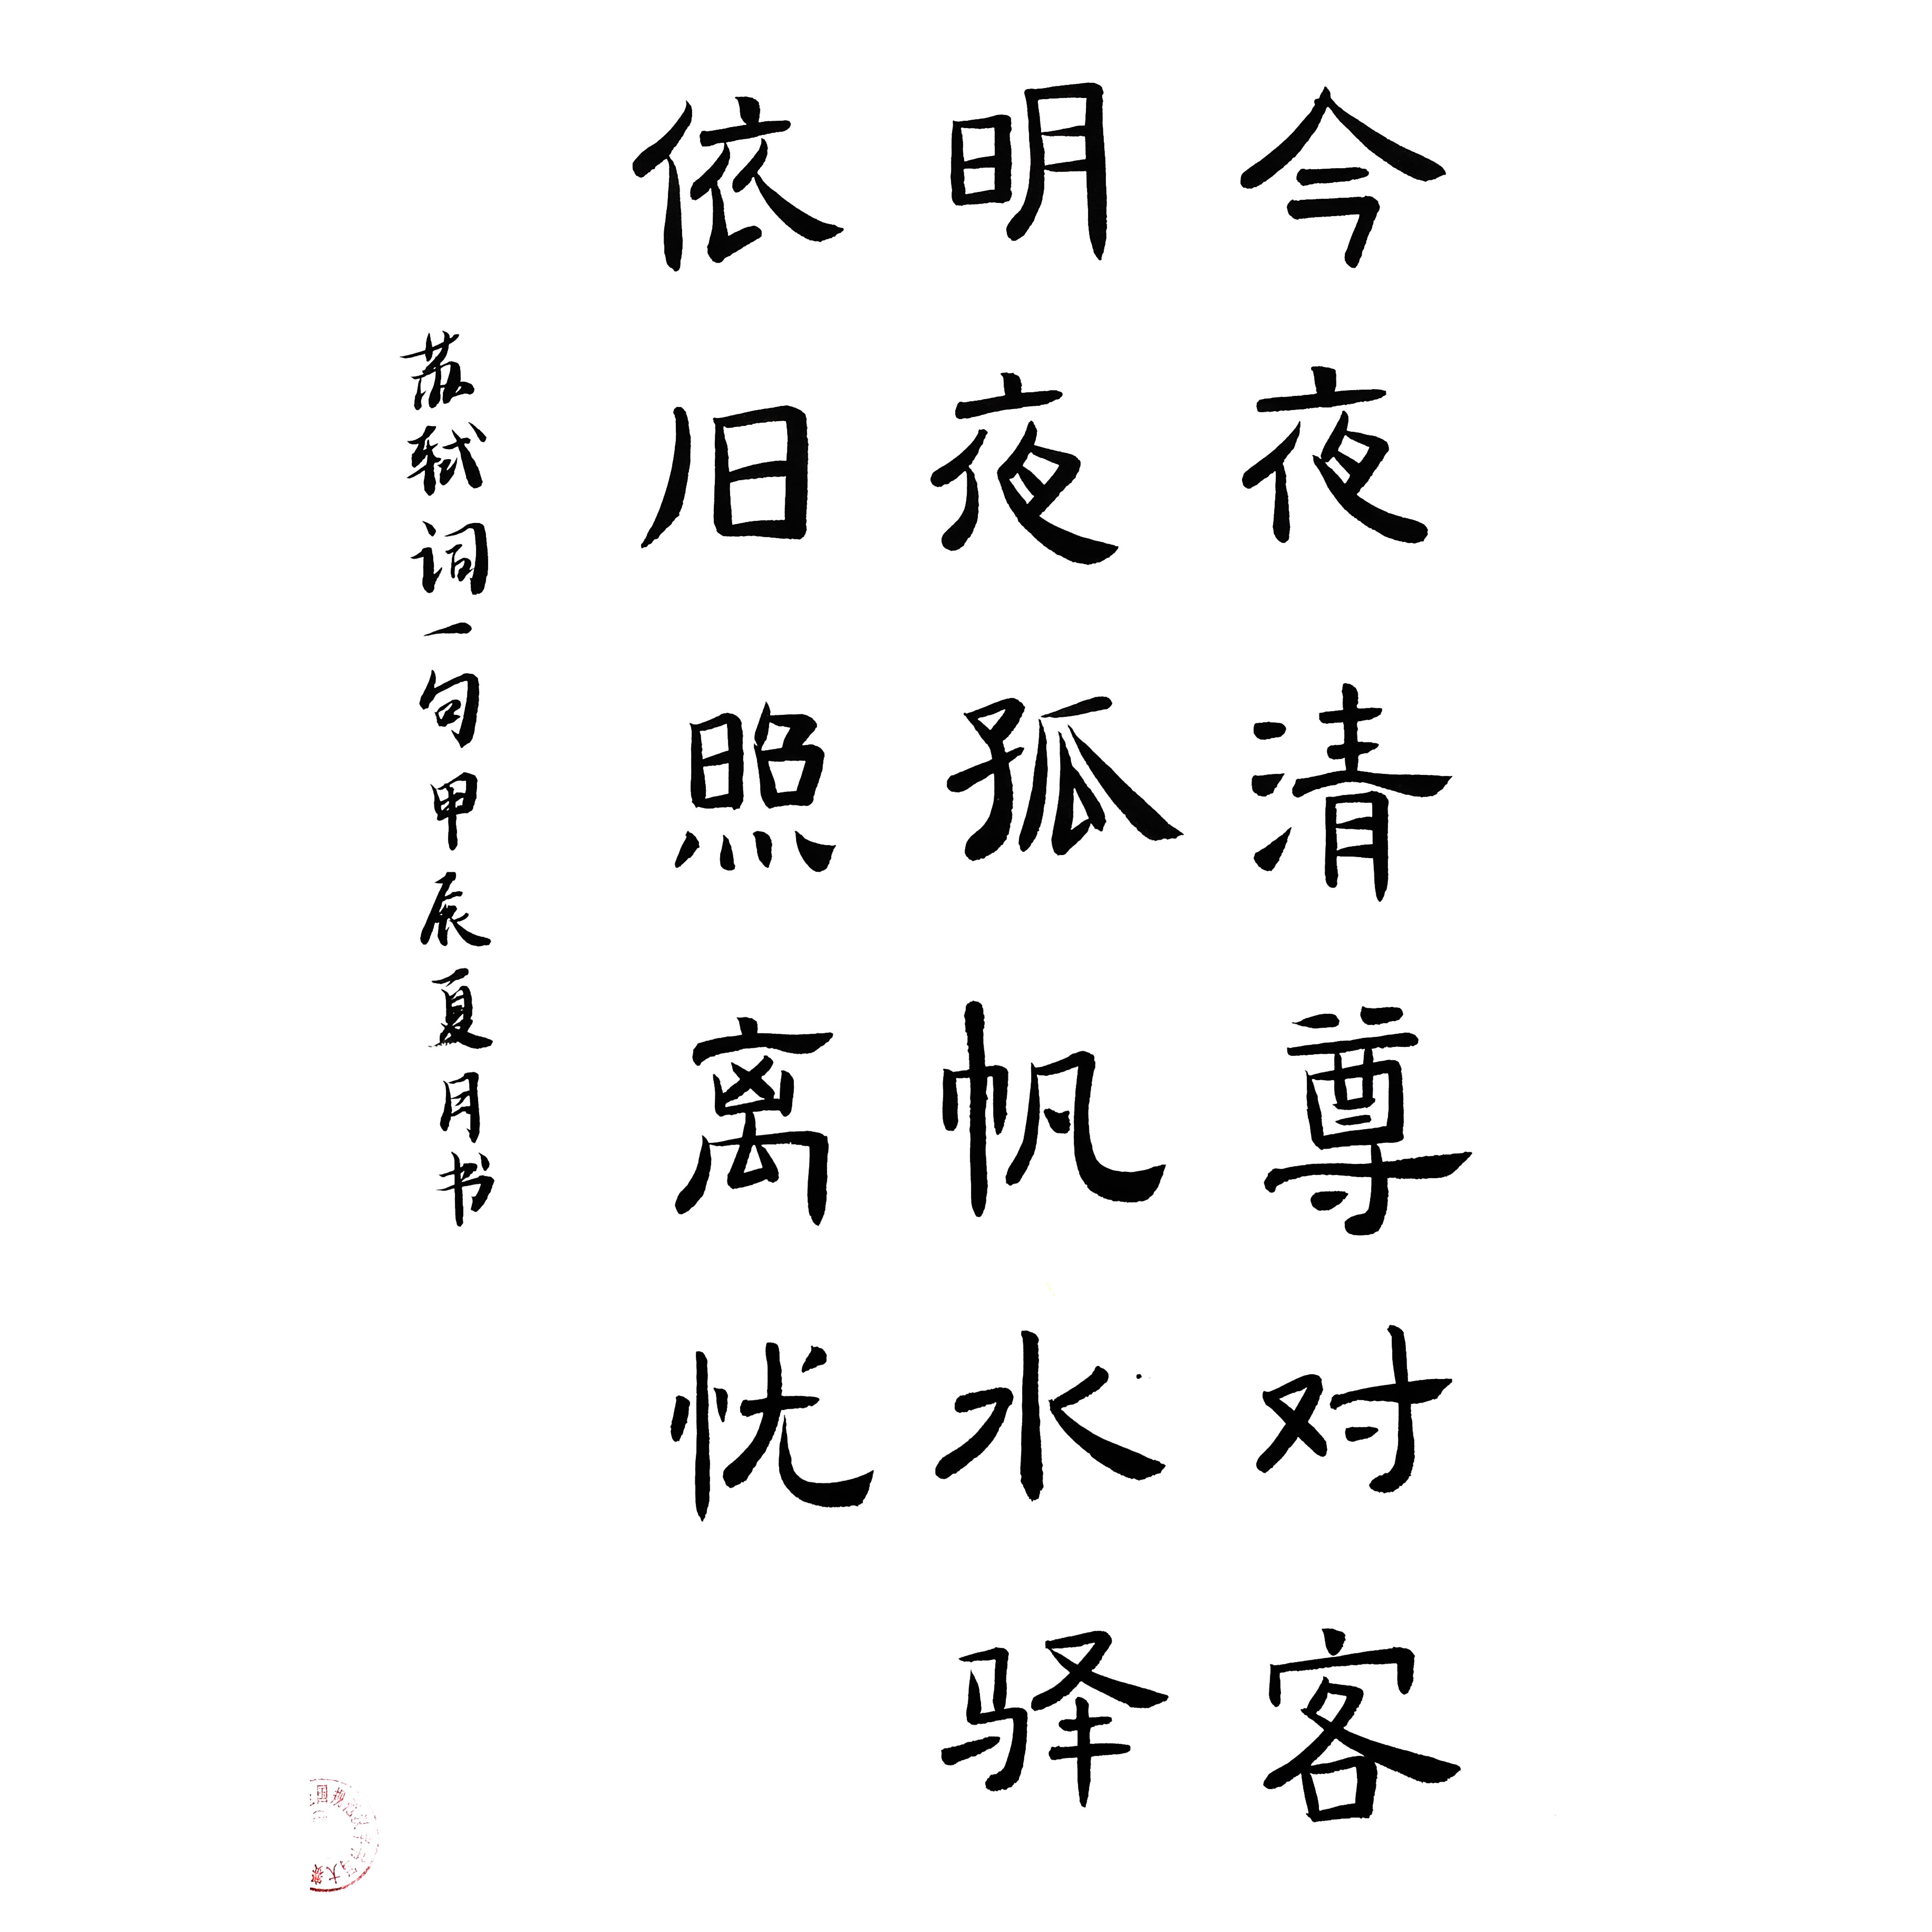 今夜清尊对客
明夜孤帆水驿
依旧照离忧
苏词一句甲辰夏月书